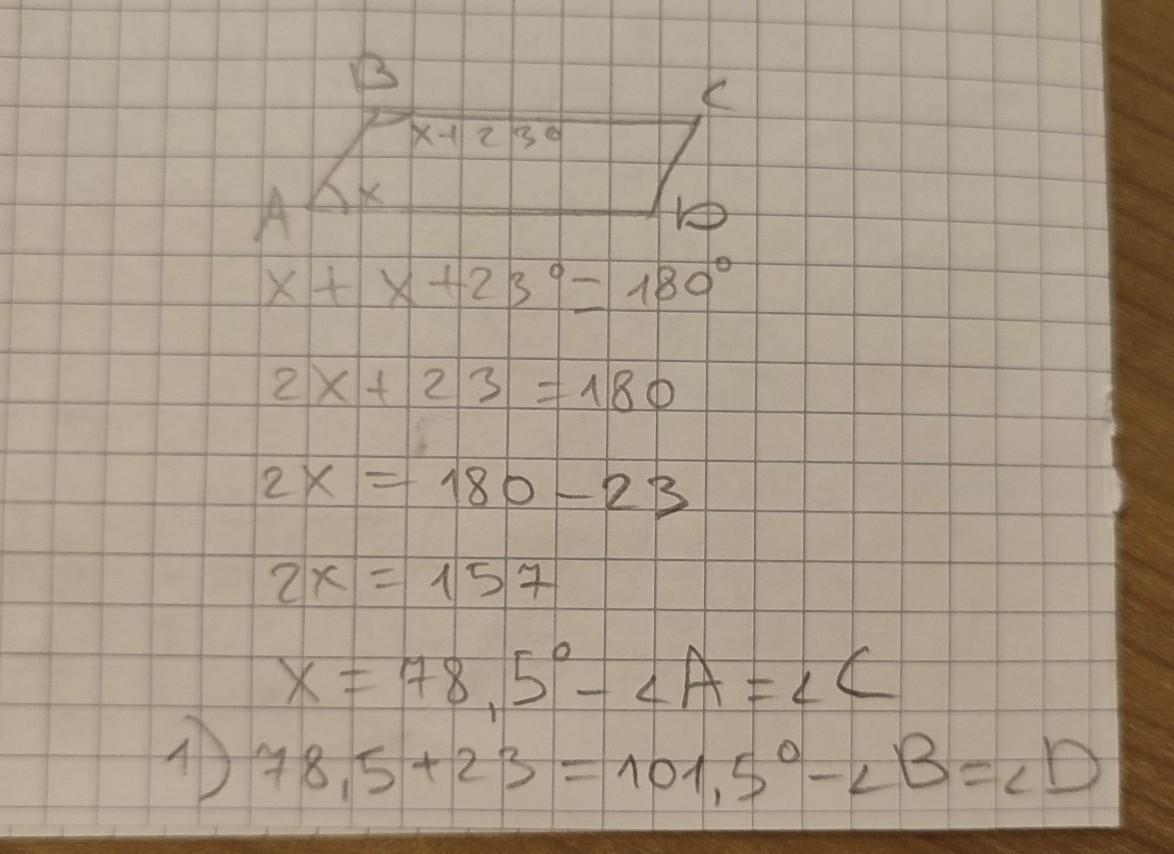 B
C
x+23°
A
x
D
x + x+23° = 180°
2x+23 = 180
2x = 180-23
2x = 157
x = 78,5° - ∠A = ∠C
1) 78,5+23 = 101,5° - ∠B = ∠D